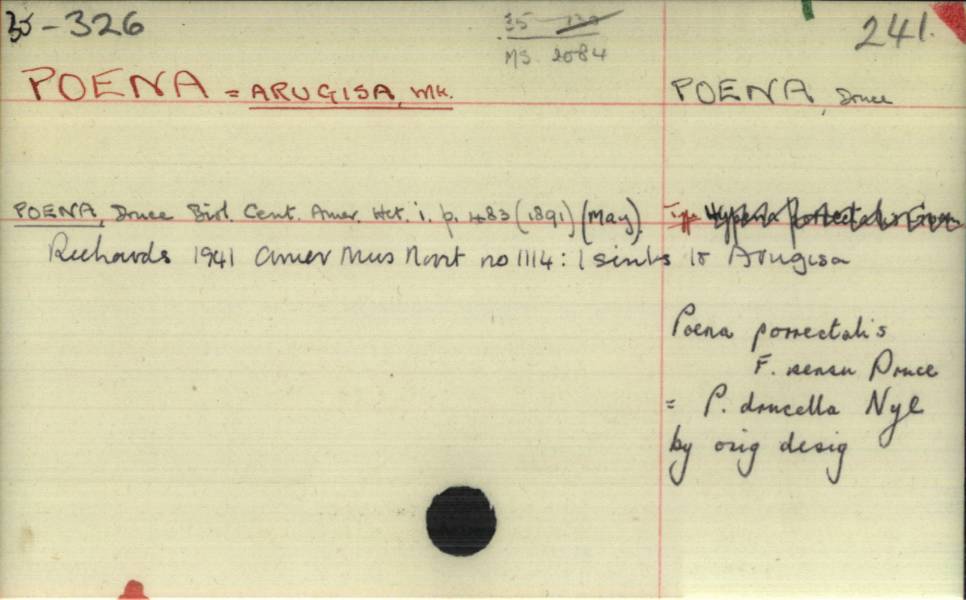 35-326
35
MS. 2084
241.
POENA = ARUGISA, Wlk.
POENA, Druce
POENA, Druce Biol. Cent. Amer. Het. i. p. 483 (1891) (May). Type Hypena porrectalis
Richards 1941 Amer Mus Novit no 1114: 1 sinks to Arugisa
Poena porrectalis
F. sensu Druce
= P. drucella Nye
by orig desig